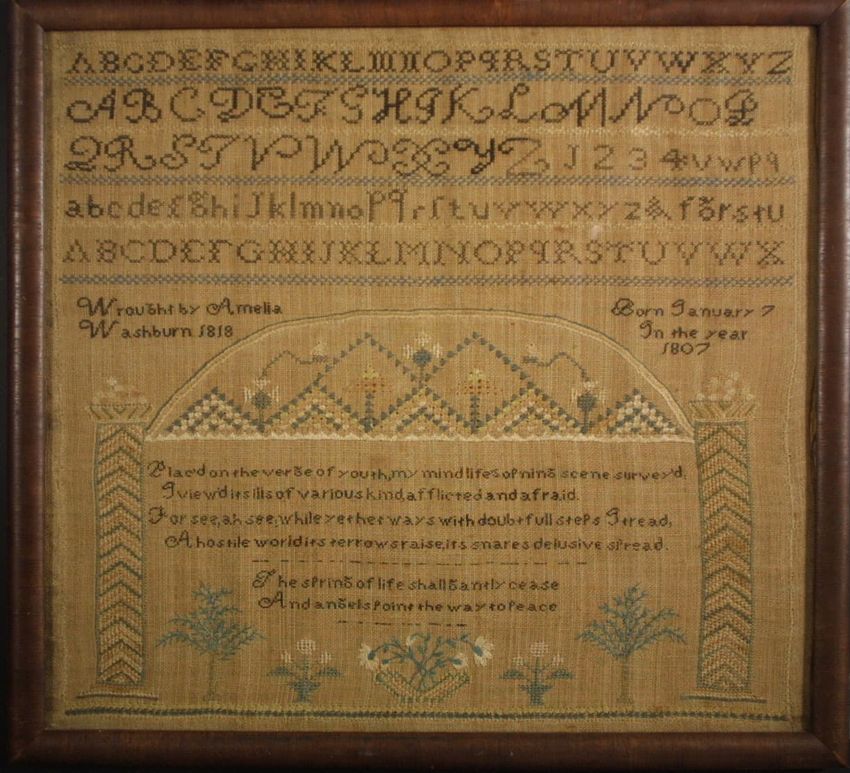 ABCDEFGHIKLMNOPqRSTUVWXYZ
ABCDEFGHIKLMNOP
QRSTVWXYZ 1 2 3 4 u v w p q
abcdefghijklmnopqrſtuvwxyz & fgrstu
ABCDEFGHIJKLMNOPqRSTUVWX
Wrought by Amelia
Washburn 1818
Born January 7
In the year
1807
Plac'd on the verge of youth, my mind life's op'ning scene survey'd.
I view'd its ills of various kind, afflicted and afraid.
For see, ah see, while yet her ways with doubtfull steps I tread,
A hostile world its terrows raise, its snares delusive spread.
The spring of life shall gantly cease
And angels point the way to Peace